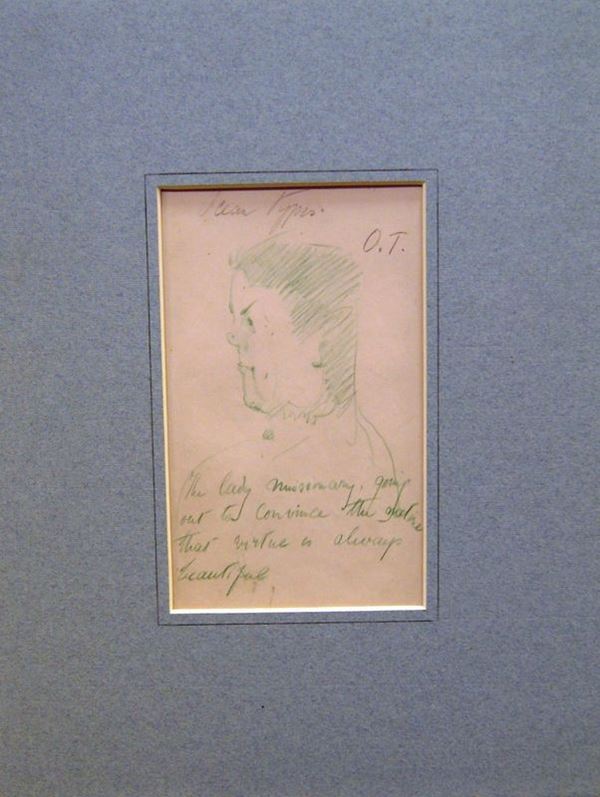 Ocean Types.
O.T.
The lady missionary, going
out to convince the natives
that virtue is always
beautiful